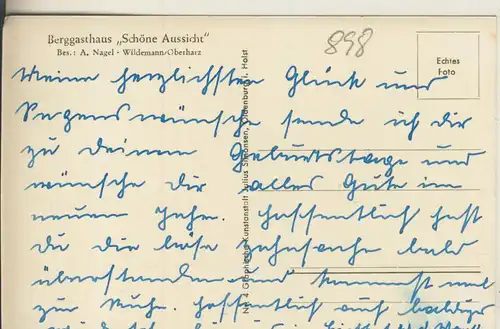 Berggasthaus „Schöne Aussicht"
Bes.: A. Nagel - Wildemann/Oberharz
898
Echtes
Foto
Meine herzlichsten Glück und
Segenswünsche sende ich dir
zu deinem Geburtstage und
wünsche dir alles Gute im
neuen Jahre. Hoffentlich hast
du die böse Zahnsache bald
überstanden und kommst mal
zur Ruhe. Hoffentlich auf baldiges
Nr. 4 Graphische Kunstanstalt Julius Simonsen, Oldenburg i. Holst